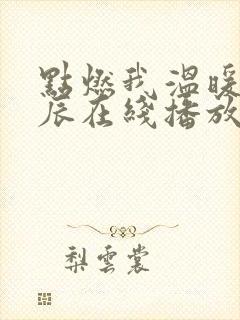 點燃我 溫暖
辰在綫播放
梨雲裳